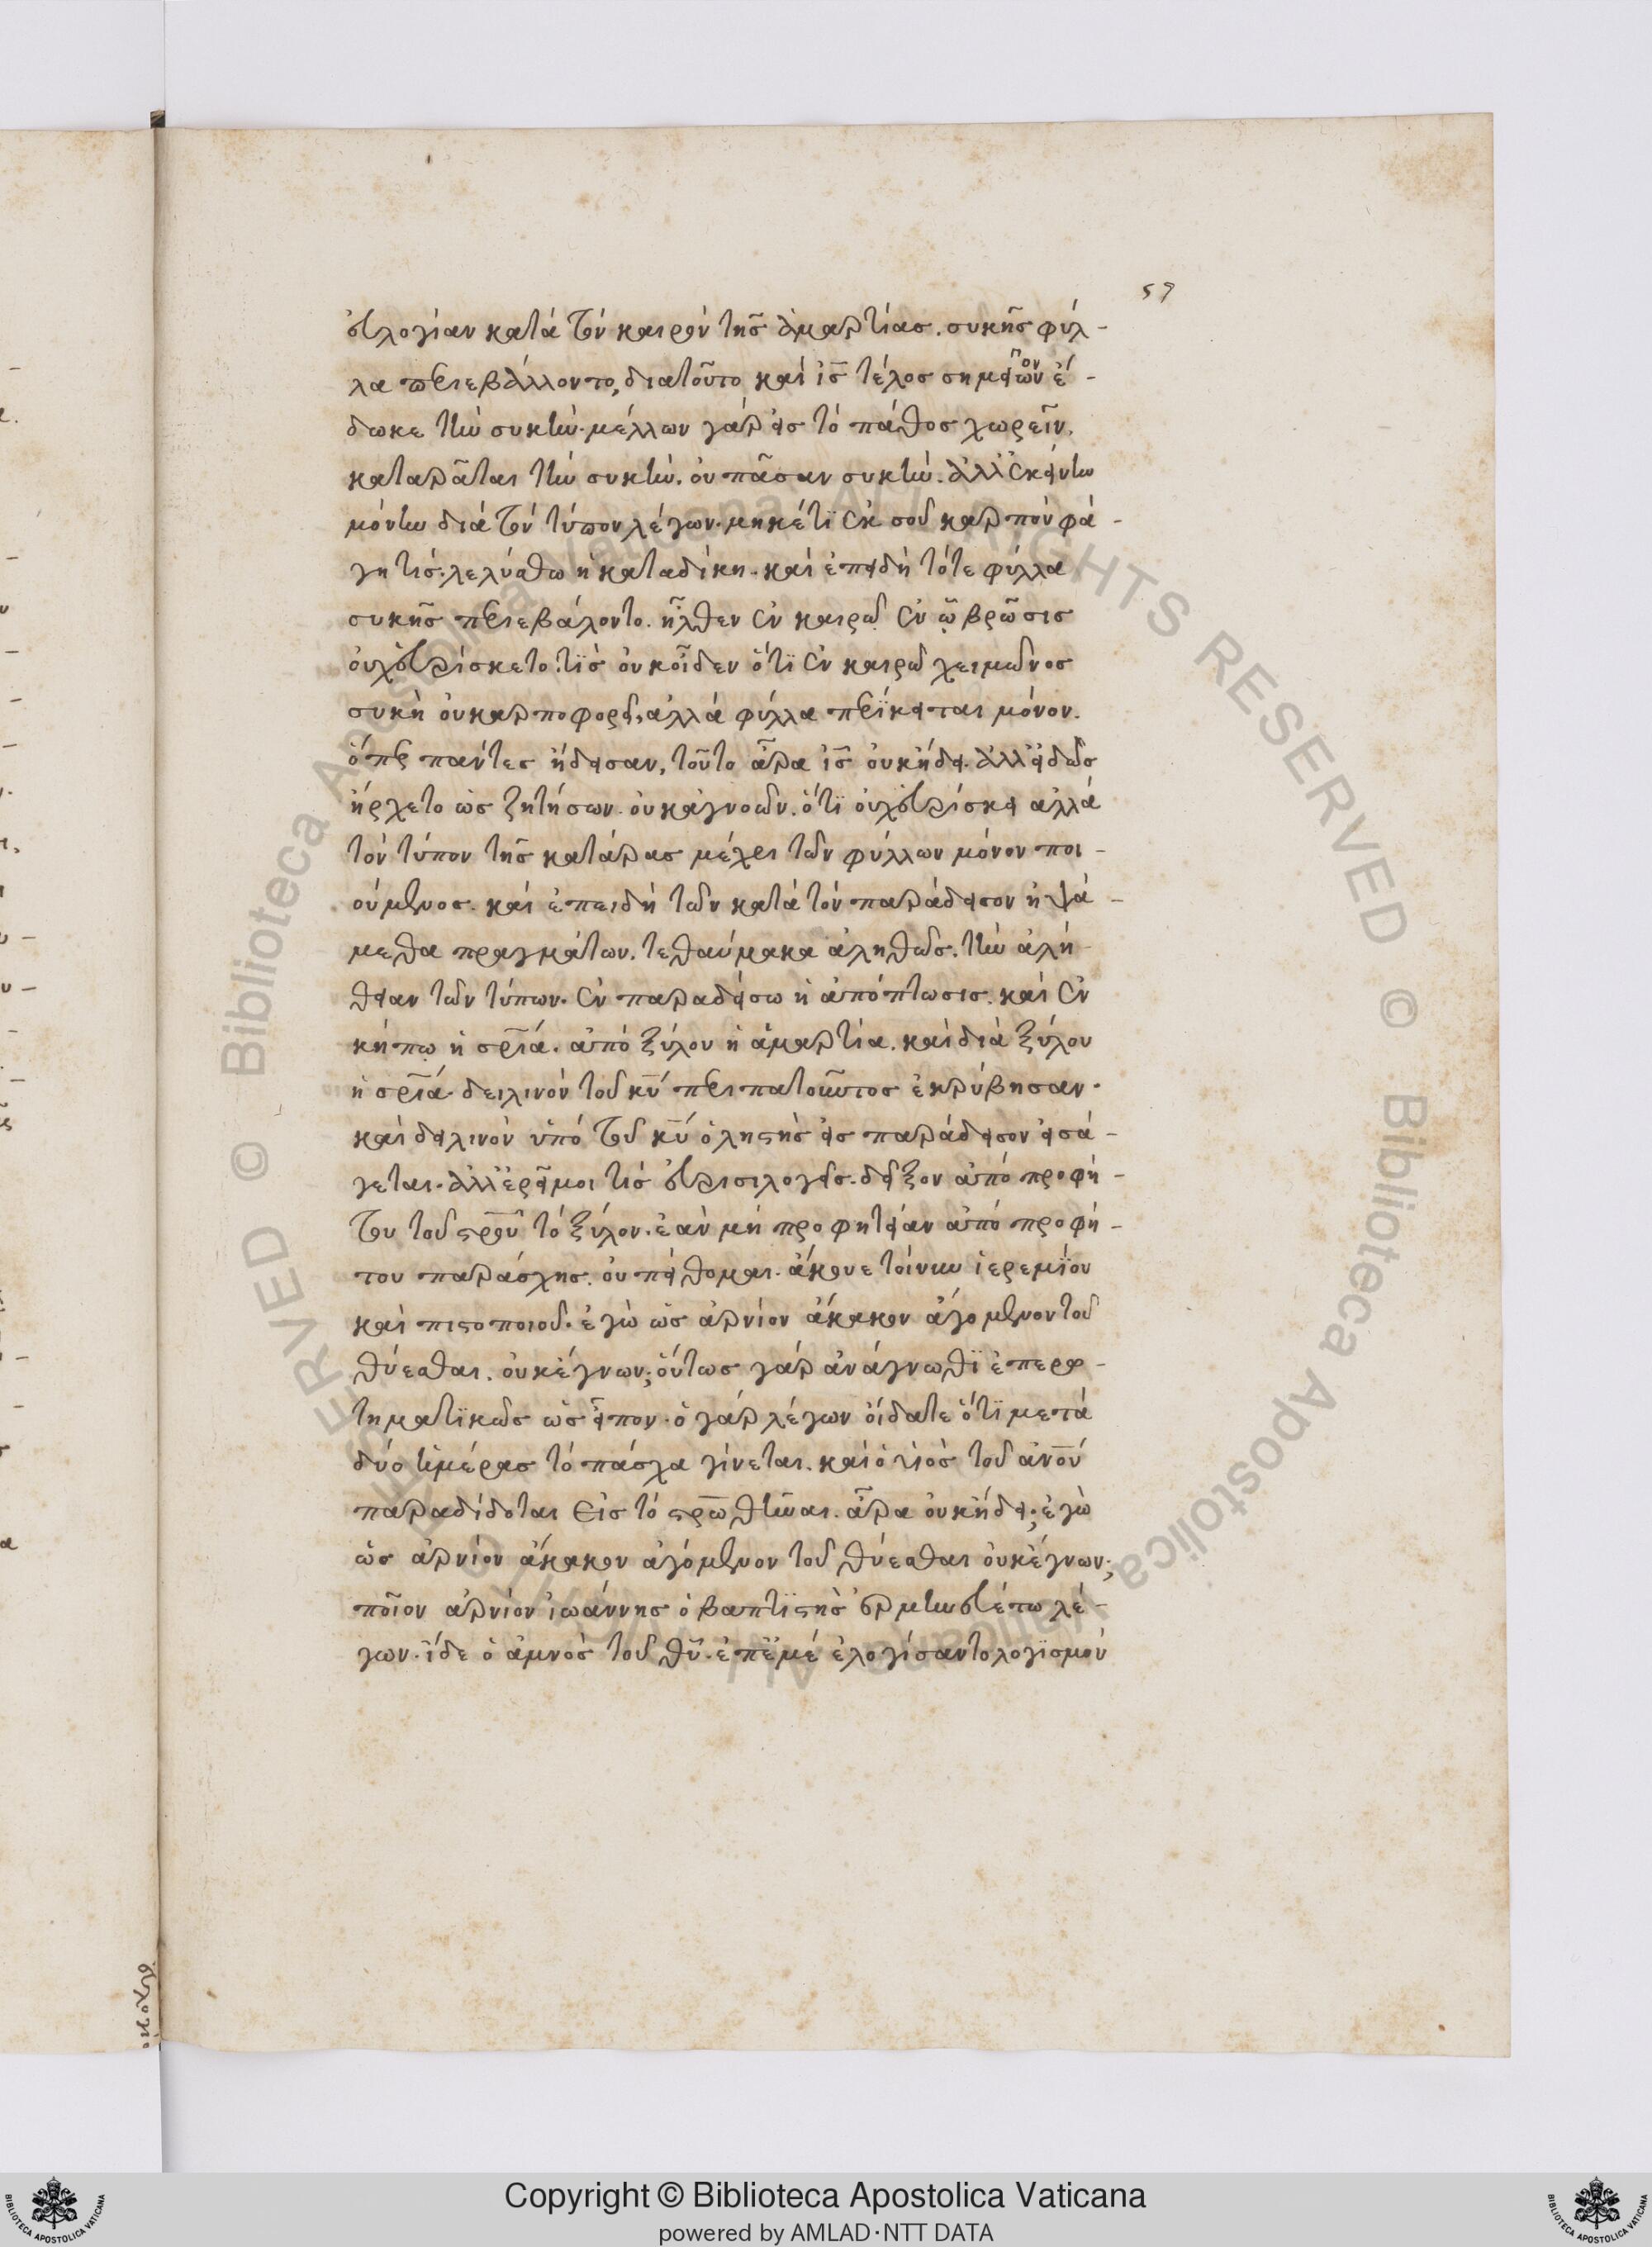 57
εὐλογίαν κατὰ τὸν καιρὸν τῆς ἁμαρτίας. συκῆς φύλ-
λα περιεβάλλοντο, διατοῦτο καὶ ις τέλος σημείων ἔ-
δωκε τὴν συκὴν. μέλλων γὰρ εἰς τὸ πάθος χωρεῖν.
καταρᾶται τὴν συκὴν. οὐ πᾶσαν συκὴν. ἀλλ' ἐκείνην
μόνην διὰ τὸν τύπον λέγων. μηκέτι ἐκ σοῦ καρπὸν φά-
γη τίς. λελύσθω ἡ καταδίκη. καὶ ἐπειδὴ τότε φύλλα
συκῆς περιεβάλοντο. ἦλθεν ἐν καιρῶ ἐν ᾧ βρῶσις
οὐχ εὑρίσκετο. τίς οὐκ οἶδεν ὅτι ἐν καιρῶ χειμῶνος
συκὴ οὐ καρποφορεῖ, ἀλλὰ φύλλα περίκειται μόνον.
ὅπερ πάντες ἤδεισαν, τοῦτο ἆρα ις οὐκ ᾔδει. ἀλλ' εἰδὼς
ἤρχετο ὡς ζητήσων. οὐκ ἀγνοῶν. ὅτι οὐχ εὑρίσκει ἀλλὰ
τὸν τύπον τῆς κατάρας μέχρι τῶν φύλλων μόνον ποι-
ούμενος. καὶ ἐπειδὴ τῶν κατὰ τὸν παράδεισον ἡψά-
μεθα πραγμάτων. τεθαύμακα ἀληθῶς. τὴν ἀλή-
θειαν τῶν τύπων. ἐν παραδείσω ἡ ἀπόπτωσις. καὶ ἐν
κήπῳ ἡ σρία. ἀπὸ ξύλου ἡ ἁμαρτία. καὶ διὰ ξύλου
ἡ σρία. δειλινὸν τοῦ κυ περιπατοῦντος ἐκρύβησαν.
καὶ δειλινὸν ὑπὸ τοῦ κυ ὁ ληστὴς εἰς παράδεισον εἰσά-
γεται. ἀλλ' ἐρεῖ μοι τίς εὑρεσιλογεῖς. δεῖξον ἀπὸ προφή-
του τοῦ σρου τὸ ξύλον. ἐὰν μὴ προφητείαν ἀπὸ προφή-
του παράσχης. οὐ πείθομαι. ἄκουε τοίνυν ἱερεμίου
καὶ πιστοποιοῦ. ἐγὼ ὡς ἀρνίον ἄκακον ἀγόμενον τοῦ
θύεσθαι. οὐκ ἔγνων; οὕτως γὰρ ἀνάγνωθι ἐπερω-
τηματικῶς ὡς εἶπον. ὁ γὰρ λέγων οἴδατε ὅτι μετὰ
δύο ἡμέρας τὸ πάσχα γίνεται. καὶ ὁ υἱὸς τοῦ ανου
παραδίδοται εἰς τὸ σρωθῆναι. ἆρα οὐκ ᾔδει; ἐγὼ
ὡς ἀρνίον ἄκακον ἀγόμενον τοῦ θύεσθαι οὐκ ἔγνων;
ποῖον ἀρνίον ἰωάννης ὁ βαπτιστὴς ἑρμηνευέτω λέ-
γων. ἴδε ὁ ἀμνὸς τοῦ θυ. ἐπ' ἐμέ ἐλογίσαντο λογισμὸν
Copyright © Biblioteca Apostolica Vaticana
powered by AMLAD·NTT DATA